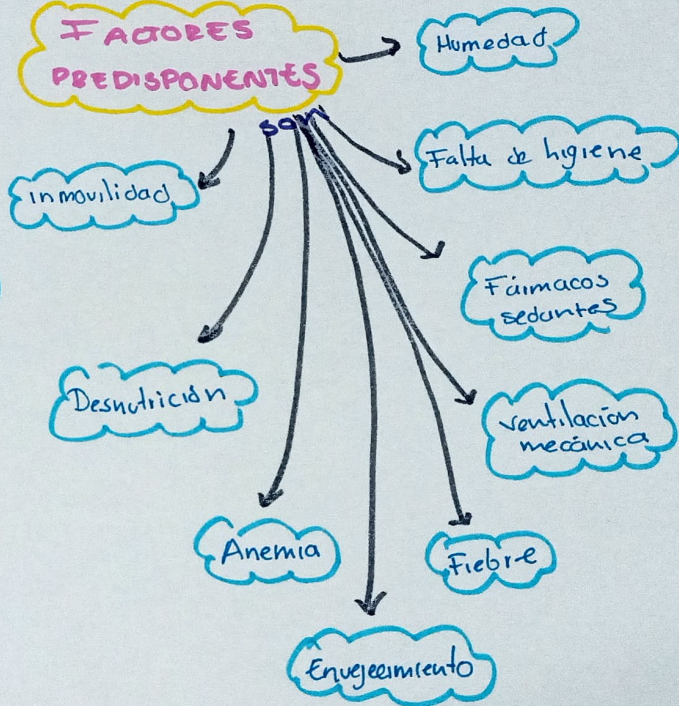 FACTORES
PREDISPONENTES
son
Humedad
Falta de higiene
inmovilidad
Fármacos
sedantes
Desnutrición
ventilación
mecánica
Anemia
Fiebre
Envejecimiento